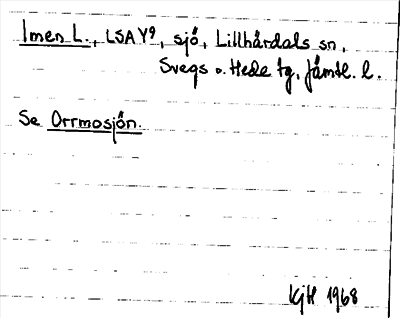 Imen L., LSAY⁹, sjö, Lillhårdals sn,
Svegs o. Hede tg, Jämtl. l.
Se Orrmosjön.
KjH 1968